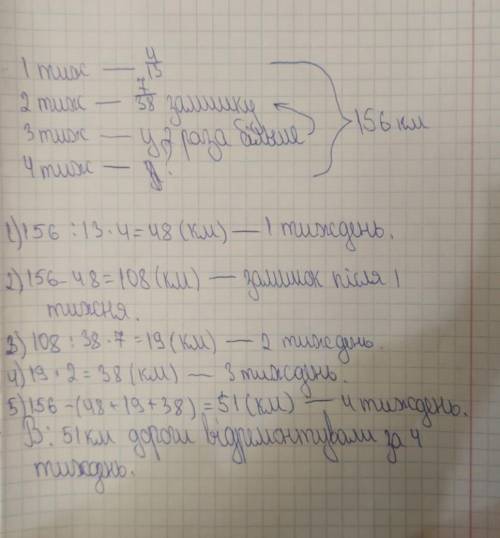 1 тиж — 4/13
2 тиж — 7/38 залишку
3 тиж — у 2 раза більше
4 тиж — ?
156 км
1) 156 : 13 · 4 = 48 (км) — 1 тиждень.
2) 156 - 48 = 108 (км) — залишок після 1
тижня.
3) 108 : 38 · 7 = 19 (км) — 2 тиждень.
4) 19 · 2 = 38 (км) — 3 тиждень.
5) 156 - (48 + 19 + 38) = 51 (км) — 4 тиждень.
В: 51 км дороги відримонтували за 4
тиждень.